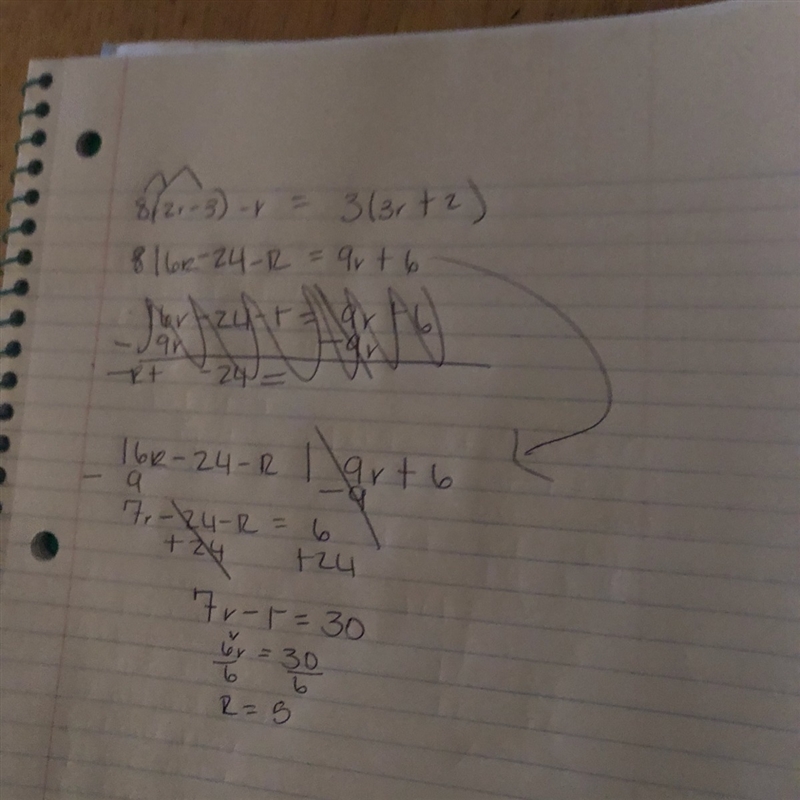 8(2r-3)-r = 3(3r+2)
816r-24-r = 9r+6
16r-24-r = 9r+6
-9r -9r
-r+ -24=
16r-24-r | 9r+6
-9 -9
7r-24-r = 6
+24 +24
7r-r=30
6r = 30
6 6
r=5